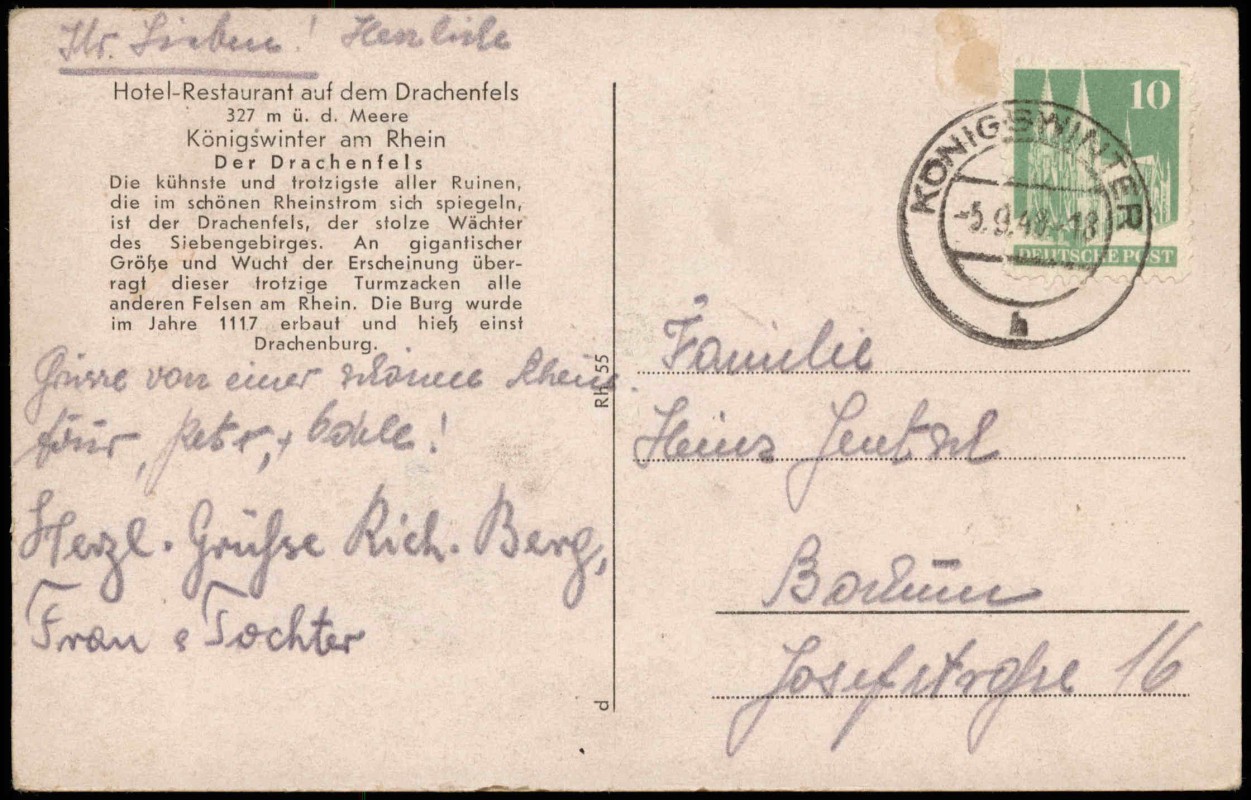 Ihr Lieben! Herzliche
Hotel-Restaurant auf dem Drachenfels
327 m ü. d. Meere
Königswinter am Rhein
Der Drachenfels
Die kühnste und trotzigste aller Ruinen,
die im schönen Rheinstrom sich spiegeln,
ist der Drachenfels, der stolze Wächter
des Siebengebirges. An gigantischer
Größe und Wucht der Erscheinung über-
ragt dieser trotzige Turmzacken alle
anderen Felsen am Rhein. Die Burg wurde
im Jahre 1117 erbaut und hieß einst
Drachenburg.
Grüsse von einer schönen Rhein
Herzl. Grüße Rich. Berg,
Frau & Tochter
Rh 55
d
10
DEUTSCHE POST
KÖNIGSWINTER
-5.9.48.-18
h
Familie
Heinz Jentzsch
Bochum
Josefstraße 16